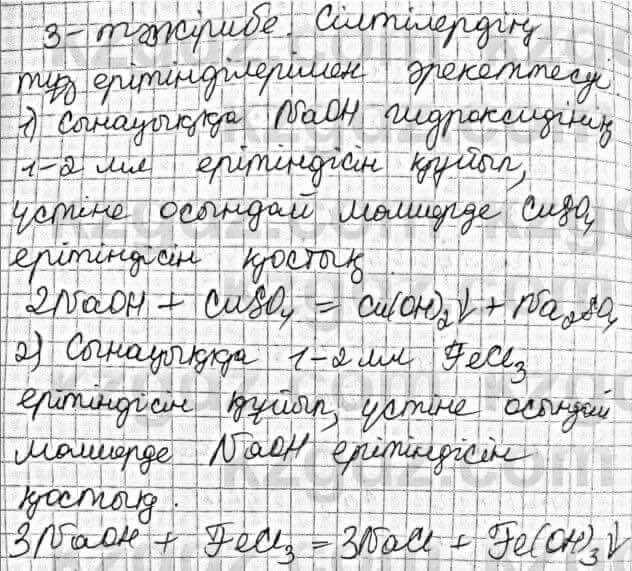 3-тәжірибе. Сілтілердің
тұз ерітінділерімен әрекеттесуі.
1) Сынауыққа NaOH гидроксидінің
1-2 мл ерітіндісін құйып,
үстіне осындай мөлшерде CuSO₄
ерітіндісін қостық
2NaOH + CuSO₄ = Cu(OH)₂↓ + Na₂SO₄
2) Сынауыққа 1-2 мл FeCl₃
ерітіндісін құйып, үстіне осындай
мөлшерде NaOH ерітіндісін
қостық.
3NaOH + FeCl₃ = 3NaCl + Fe(OH)₃↓